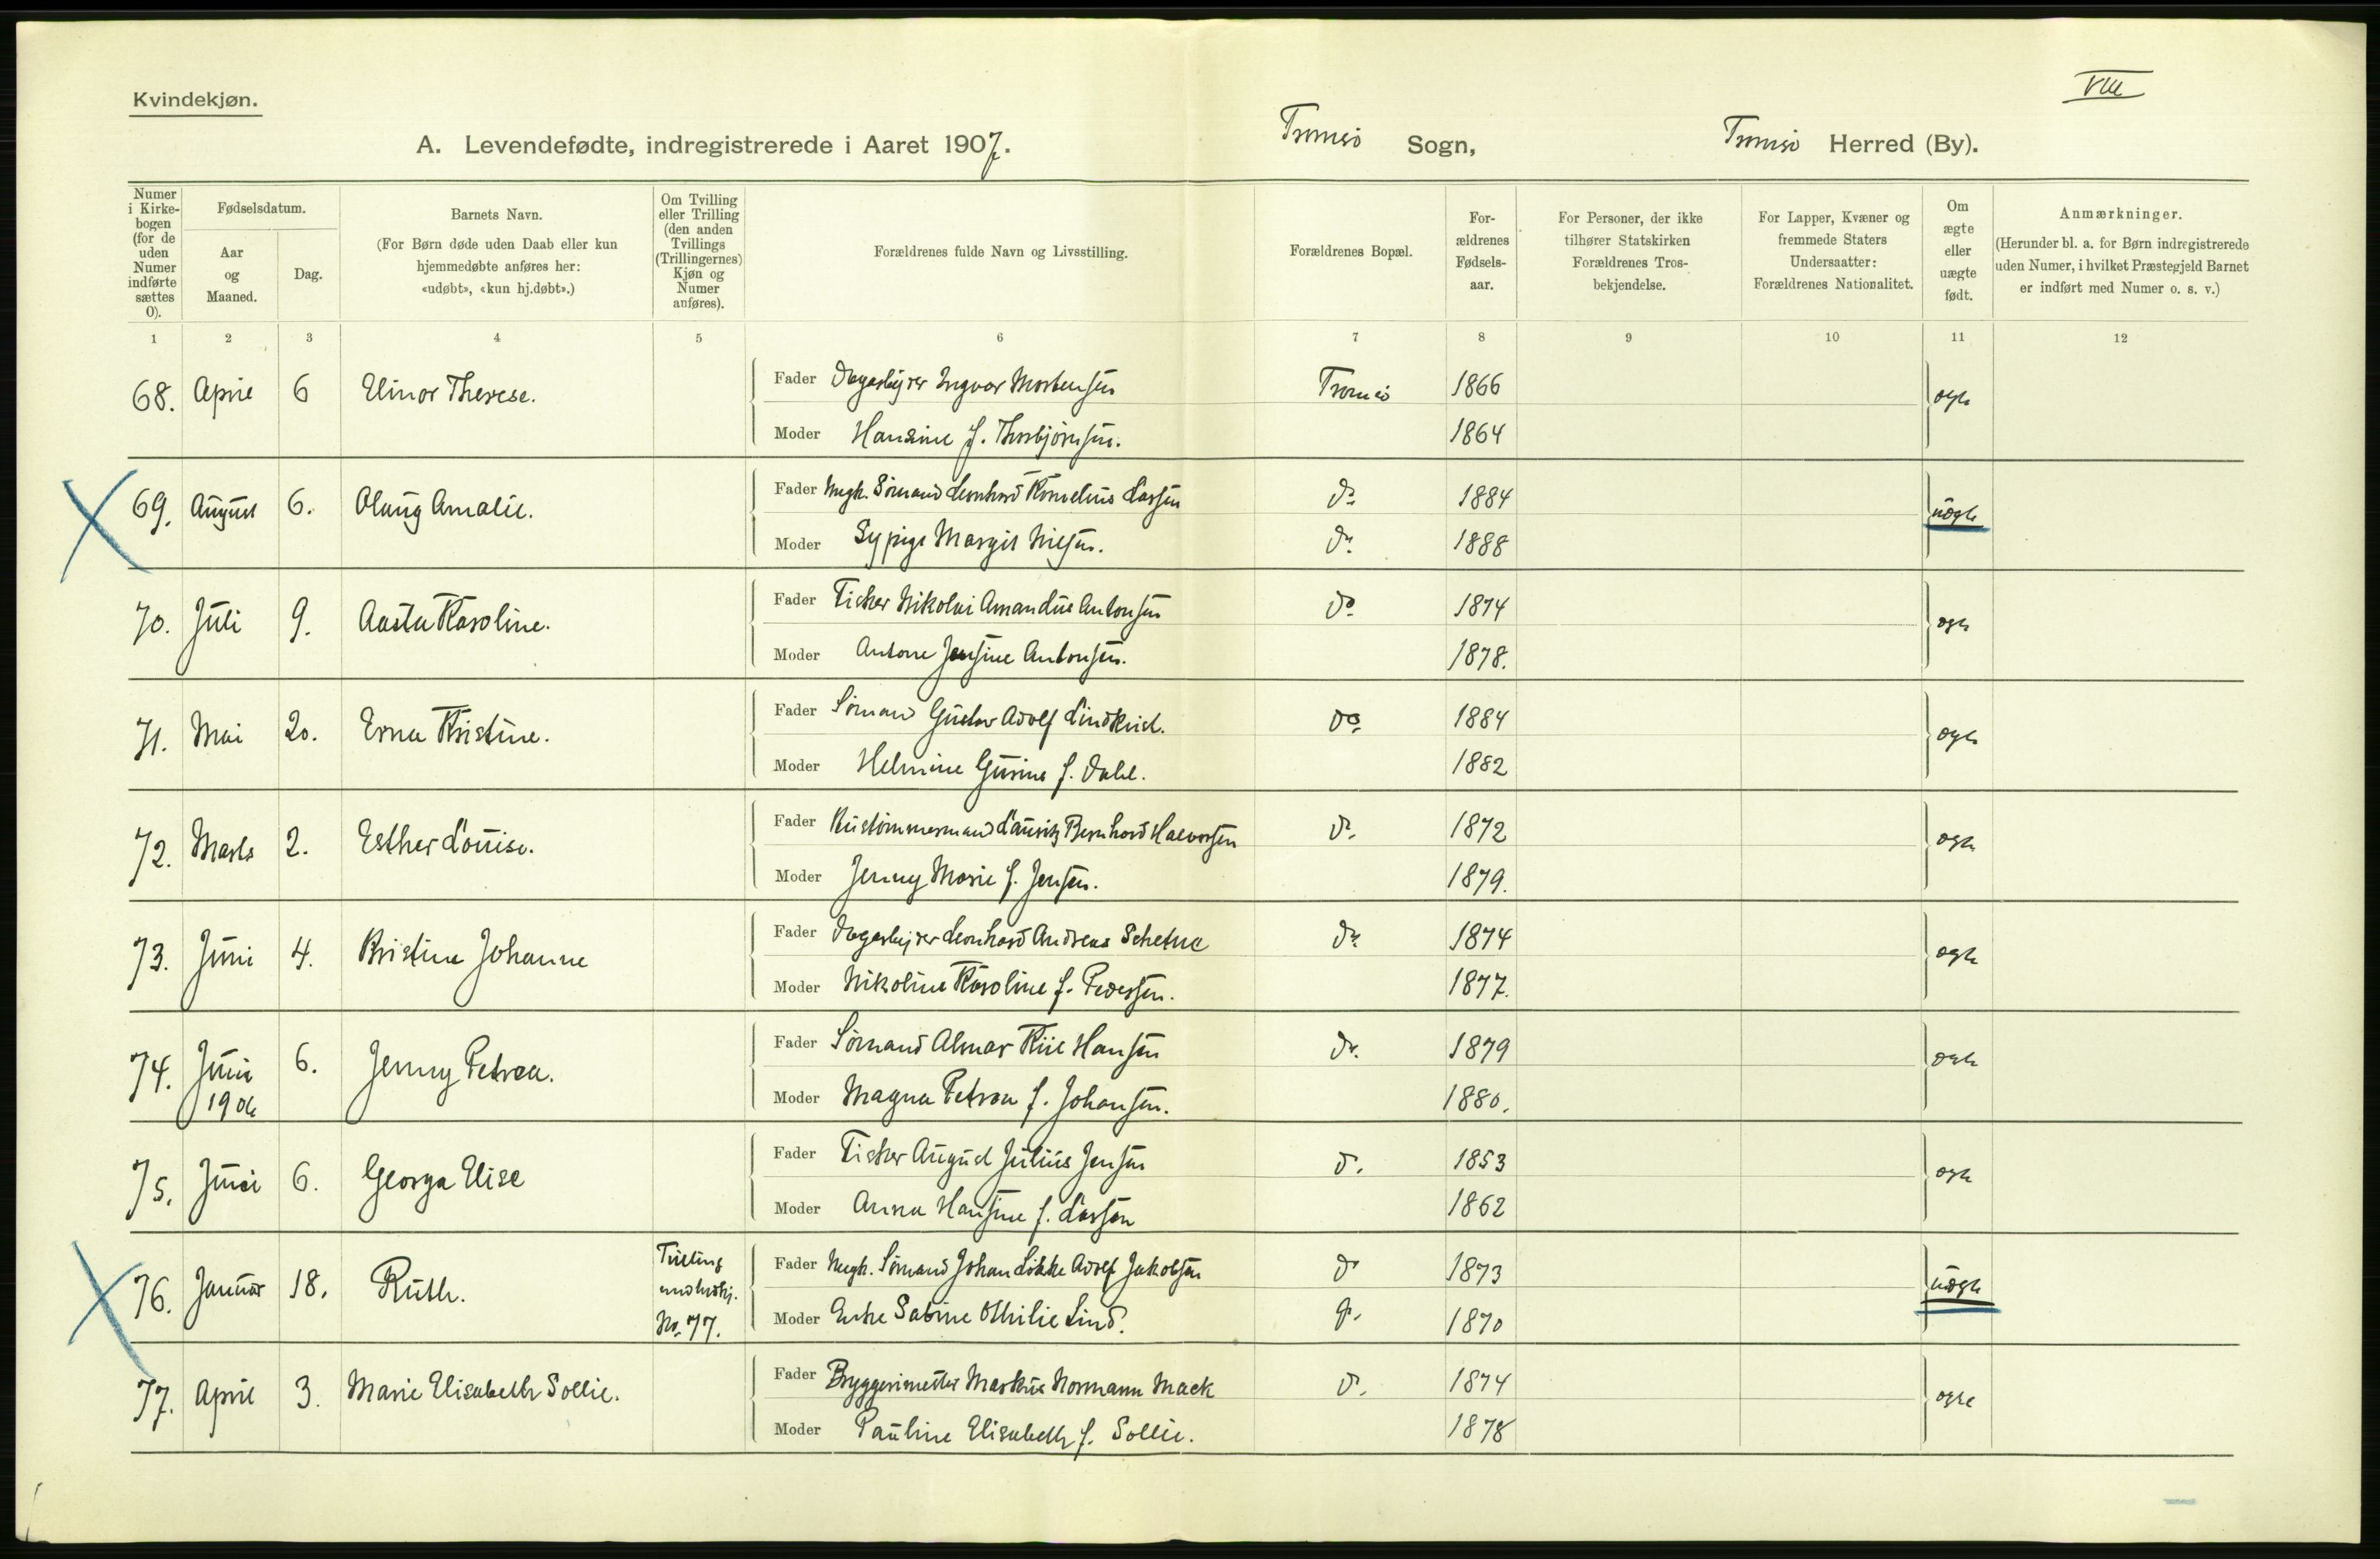 VIII
Kvindekjøn.
A. Levendefødte, indregistrerede i Aaret 1907. Tromsö Sogn, Tromsö Herred (By).
Numer i Kirkebogen (for de uden Numer indførte sættes 0).
Fødselsdatum.
Aar og Maaned.
Dag.
Barnets Navn.
(For Børn døde uden Daab eller kun hjemmedøbte anføres her: «udøbt», «kun hj.døbt».)
Om Tvilling eller Trilling (den anden Tvillings (Trillingernes) Kjøn og Numer anføres).
Forældrenes fulde Navn og Livsstilling.
Forældrenes Bopæl.
Forældrenes Fødselsaar.
For Personer, der ikke tilhører Statskirken Forældrenes Trosbekjendelse.
For Lapper, Kvæner og fremmede Staters Undersaatter: Forældrenes Nationalitet.
Om ægte eller uægte født.
Anmærkninger.
(Herunder bl. a. for Børn indregistrerede uden Numer, i hvilket Præstegjeld Barnet er indført med Numer o. s. v.)
1 2 3 4 5 6 7 8 9 10 11 12
68. April 6 Elinor Therese. Fader Ingvar Mortensen Tromsö 1866 ægte
Moder Hansine f. Thorbjörnsen. 1864
69. August 6. Olaug Amalie. Fader Ungk. Sömand Leonhard Kornelius Larsen do 1884 uægte
Moder Sypige Margit Nilsen. do 1888
70. Juli 9. Aasta Karoline. Fader Fisker Nikolai Amandus Antonsen do 1874 ægte
Moder Antone Jensine Antonsen. 1878.
71. Mai 20. Erna Kristine. Fader Sömand Gustav Adolf Lindkvist. do 1884 ægte
Moder Helmine Gusine f. Dahl. 1882
72. Marts 2. Esther Louise. Fader Hustömmermand Lauritz Bernhard Halvorsen do. 1872 ægte
Moder Jenny Marie f. Jensen. 1879.
73. Juni 4. Kristine Johanne Fader Leonhard Andreas Schetne do 1874 ægte
Moder Nikoline Karoline f. Pedersen. 1877.
74. Juni 1906 6. Jenny Petrea. Fader Sömand Almar Kiil Hansen do. 1879 ægte
Moder Magna Petrea f. Johansen. 1880.
75. Juni 6. Georga Elise Fader Fisker August Julius Jensen d. 1853 ægte
Moder Anna Hansine f. Larsen 1862
76. Januar 18. Ruth. Tvilling No. 77. Fader Ungk. Sömand Johan Lökke Adolf Jakobsen d 1873 uægte
Moder Enke Sabine Othilie Lind. 1870
77. April 3. Marie Elisabeth Sollie. Fader Bryggerimester Markus Normann Mack d. 1874 ægte
Moder Pauline Elisabeth f. Sollie. 1878